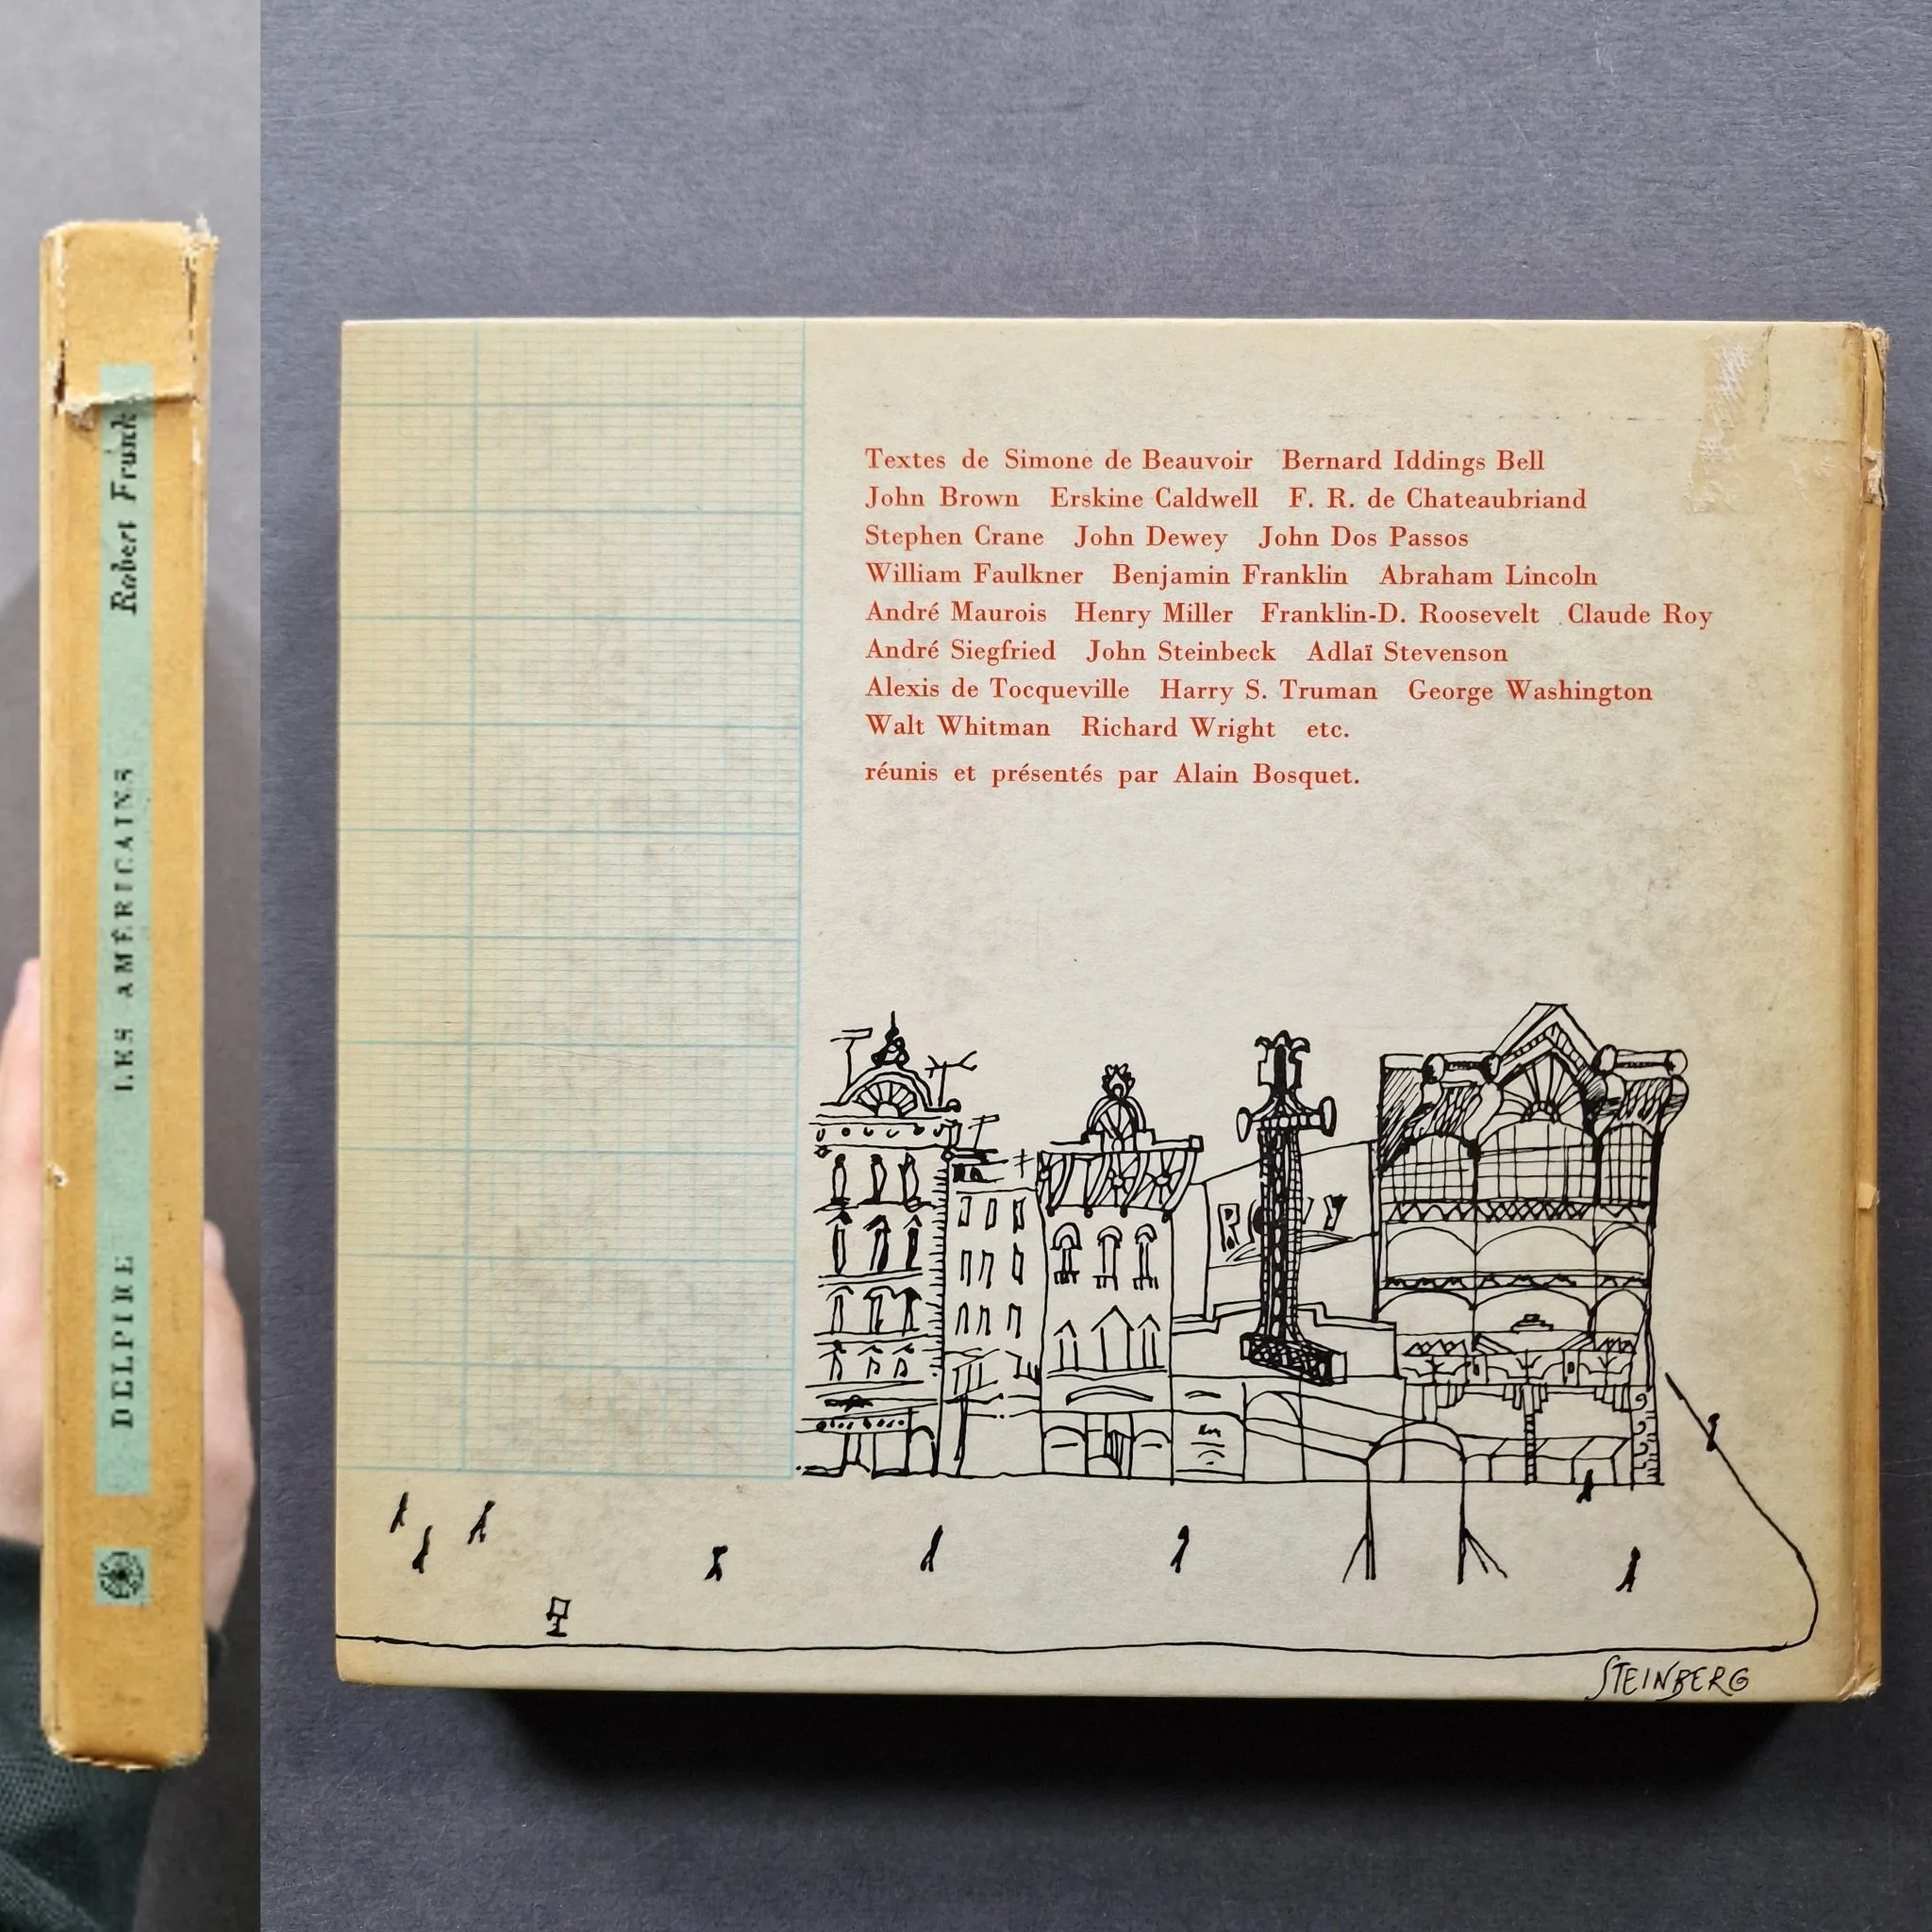 DELPIRE LES AMÉRICAINS Robert Frank
Textes de Simone de Beauvoir Bernard Iddings Bell
John Brown Erskine Caldwell F. R. de Chateaubriand
Stephen Crane John Dewey John Dos Passos
William Faulkner Benjamin Franklin Abraham Lincoln
André Maurois Henry Miller Franklin-D. Roosevelt Claude Roy
André Siegfried John Steinbeck Adlaï Stevenson
Alexis de Tocqueville Harry S. Truman George Washington
Walt Whitman Richard Wright etc.
réunis et présentés par Alain Bosquet.
STEINBERG